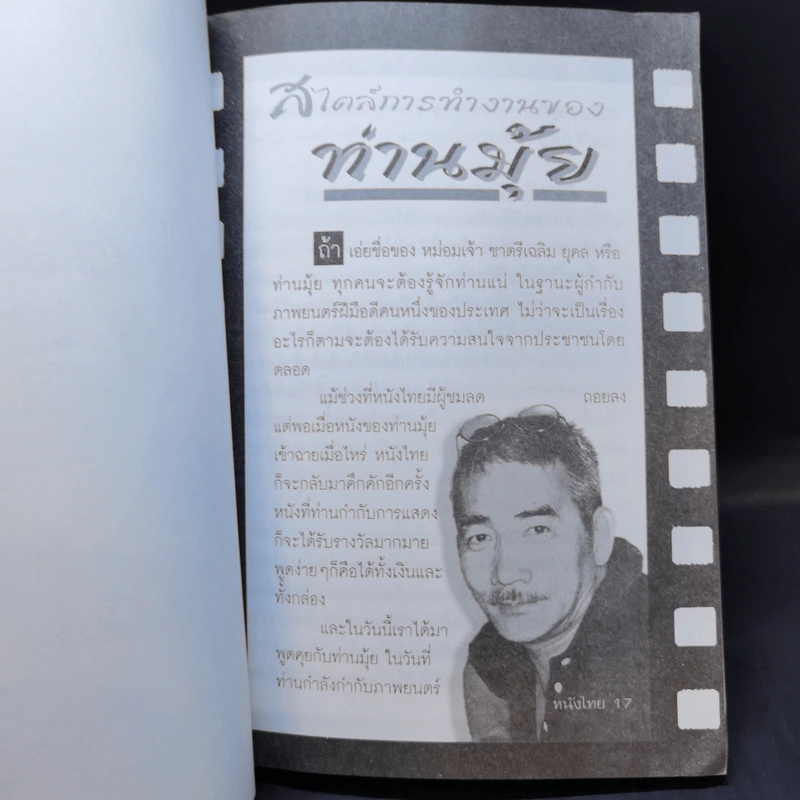 สไตล์การทำงานของ
ท่านมุ้ย
ถ้า เอ่ยชื่อของ หม่อมเจ้า ชาตรีเฉลิม ยุคล หรือ
ท่านมุ้ย ทุกคนจะต้องรู้จักท่านแน่ ในฐานะผู้กำกับ
ภาพยนตร์ฝีมือดีคนหนึ่งของประเทศ ไม่ว่าจะเป็นเรื่อง
อะไรก็ตามจะต้องได้รับความสนใจจากประชาชนโดย
ตลอด
แม้ช่วงที่หนังไทยมีผู้ชมลด ถอยลง
แต่พอเมื่อหนังของท่านมุ้ย
เข้าฉายเมื่อไหร่ หนังไทย
ก็จะกลับมาคึกคักอีกครั้ง
หนังที่ท่านกำกับการแสดง
ก็จะได้รับรางวัลมากมาย
พูดง่ายๆก็คือได้ทั้งเงินและ
ทั้งกล่อง
และในวันนี้เราได้มา
พูดคุยกับท่านมุ้ย ในวันที่
ท่านกำลังกำกับภาพยนตร์
หนังไทย 17